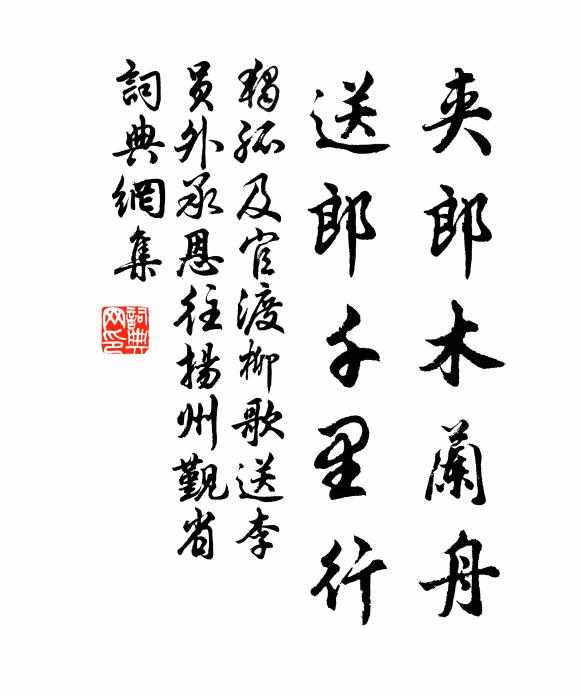 夹郎木蘭舟
送郎千里行
獨孤及官渡柳歌送李
员外承恩往揚州觐省
詞典網集
詞典
网印